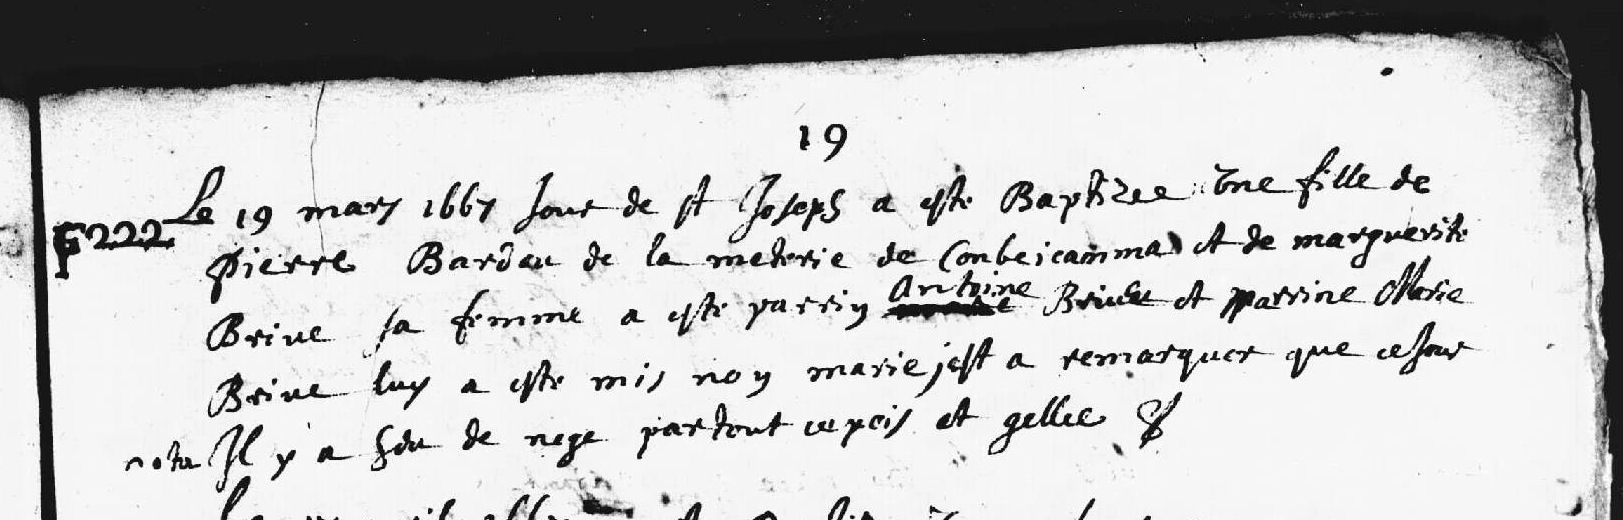 19
F222 Le 19 mars 1667 Jour de st Joseph a este Baptizee Une fille de
Pierre Bardau de la meterie de Conbeicamma et de marguerite
Brive sa femme a este parrin Antoine Brive et marrine Marie
Brive luy a este mis non marie jest a remarquer que ce Jour
nota Il y a heu de nege partout ce peis et gellee